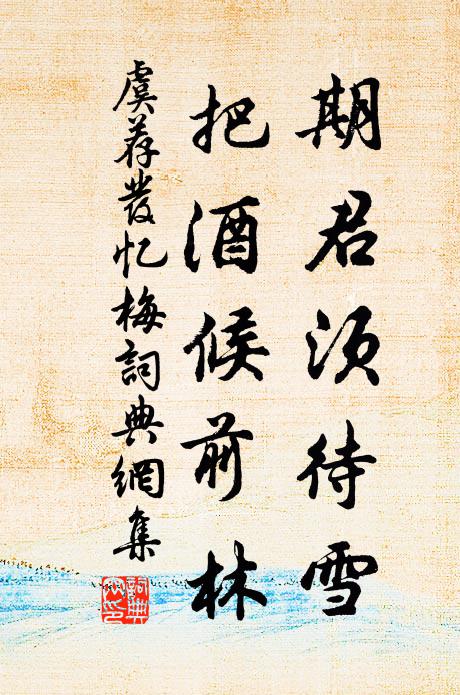 期君须待雪
把酒候前林
虞荐发忆梅詞典網集
詞典